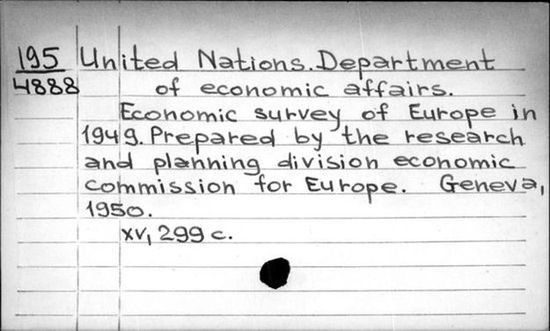 195 United Nations. Department
4888 of economic affairs.
Economic survey of Europe in
1949. Prepared by the research
and planning division economic
commission for Europe. Geneva,
1950.
xv, 299 c.